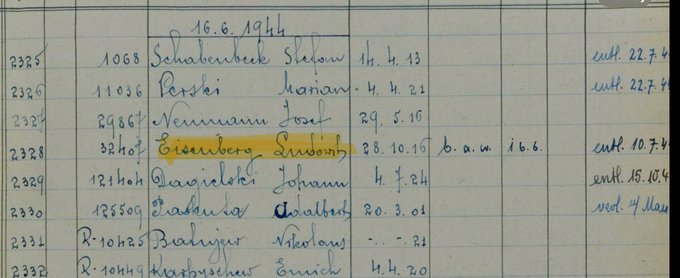 16.6.1944
2325 1068 Schabenbeck Stefan 14.4.13 entl. 22.7.4
2326 11036 Perski Marian 4.4.21 entl. 22.7.4
2327 29867 Neumann Josef 29.5.16
2328 32407 Eisenberg Ludowik 28.10.16 b.a.w. 16.6. entl. 10.7.4
2329 121404 Dagielski Johann 4.7.24 entl. 15.10.4
2330 125509 Adalbert 20.3.01 verl. n/ Mau
2331 R-10425 Batujew Nikolaus -.-.21
2332 R-10449 Karbyschew Emich 4.4.20